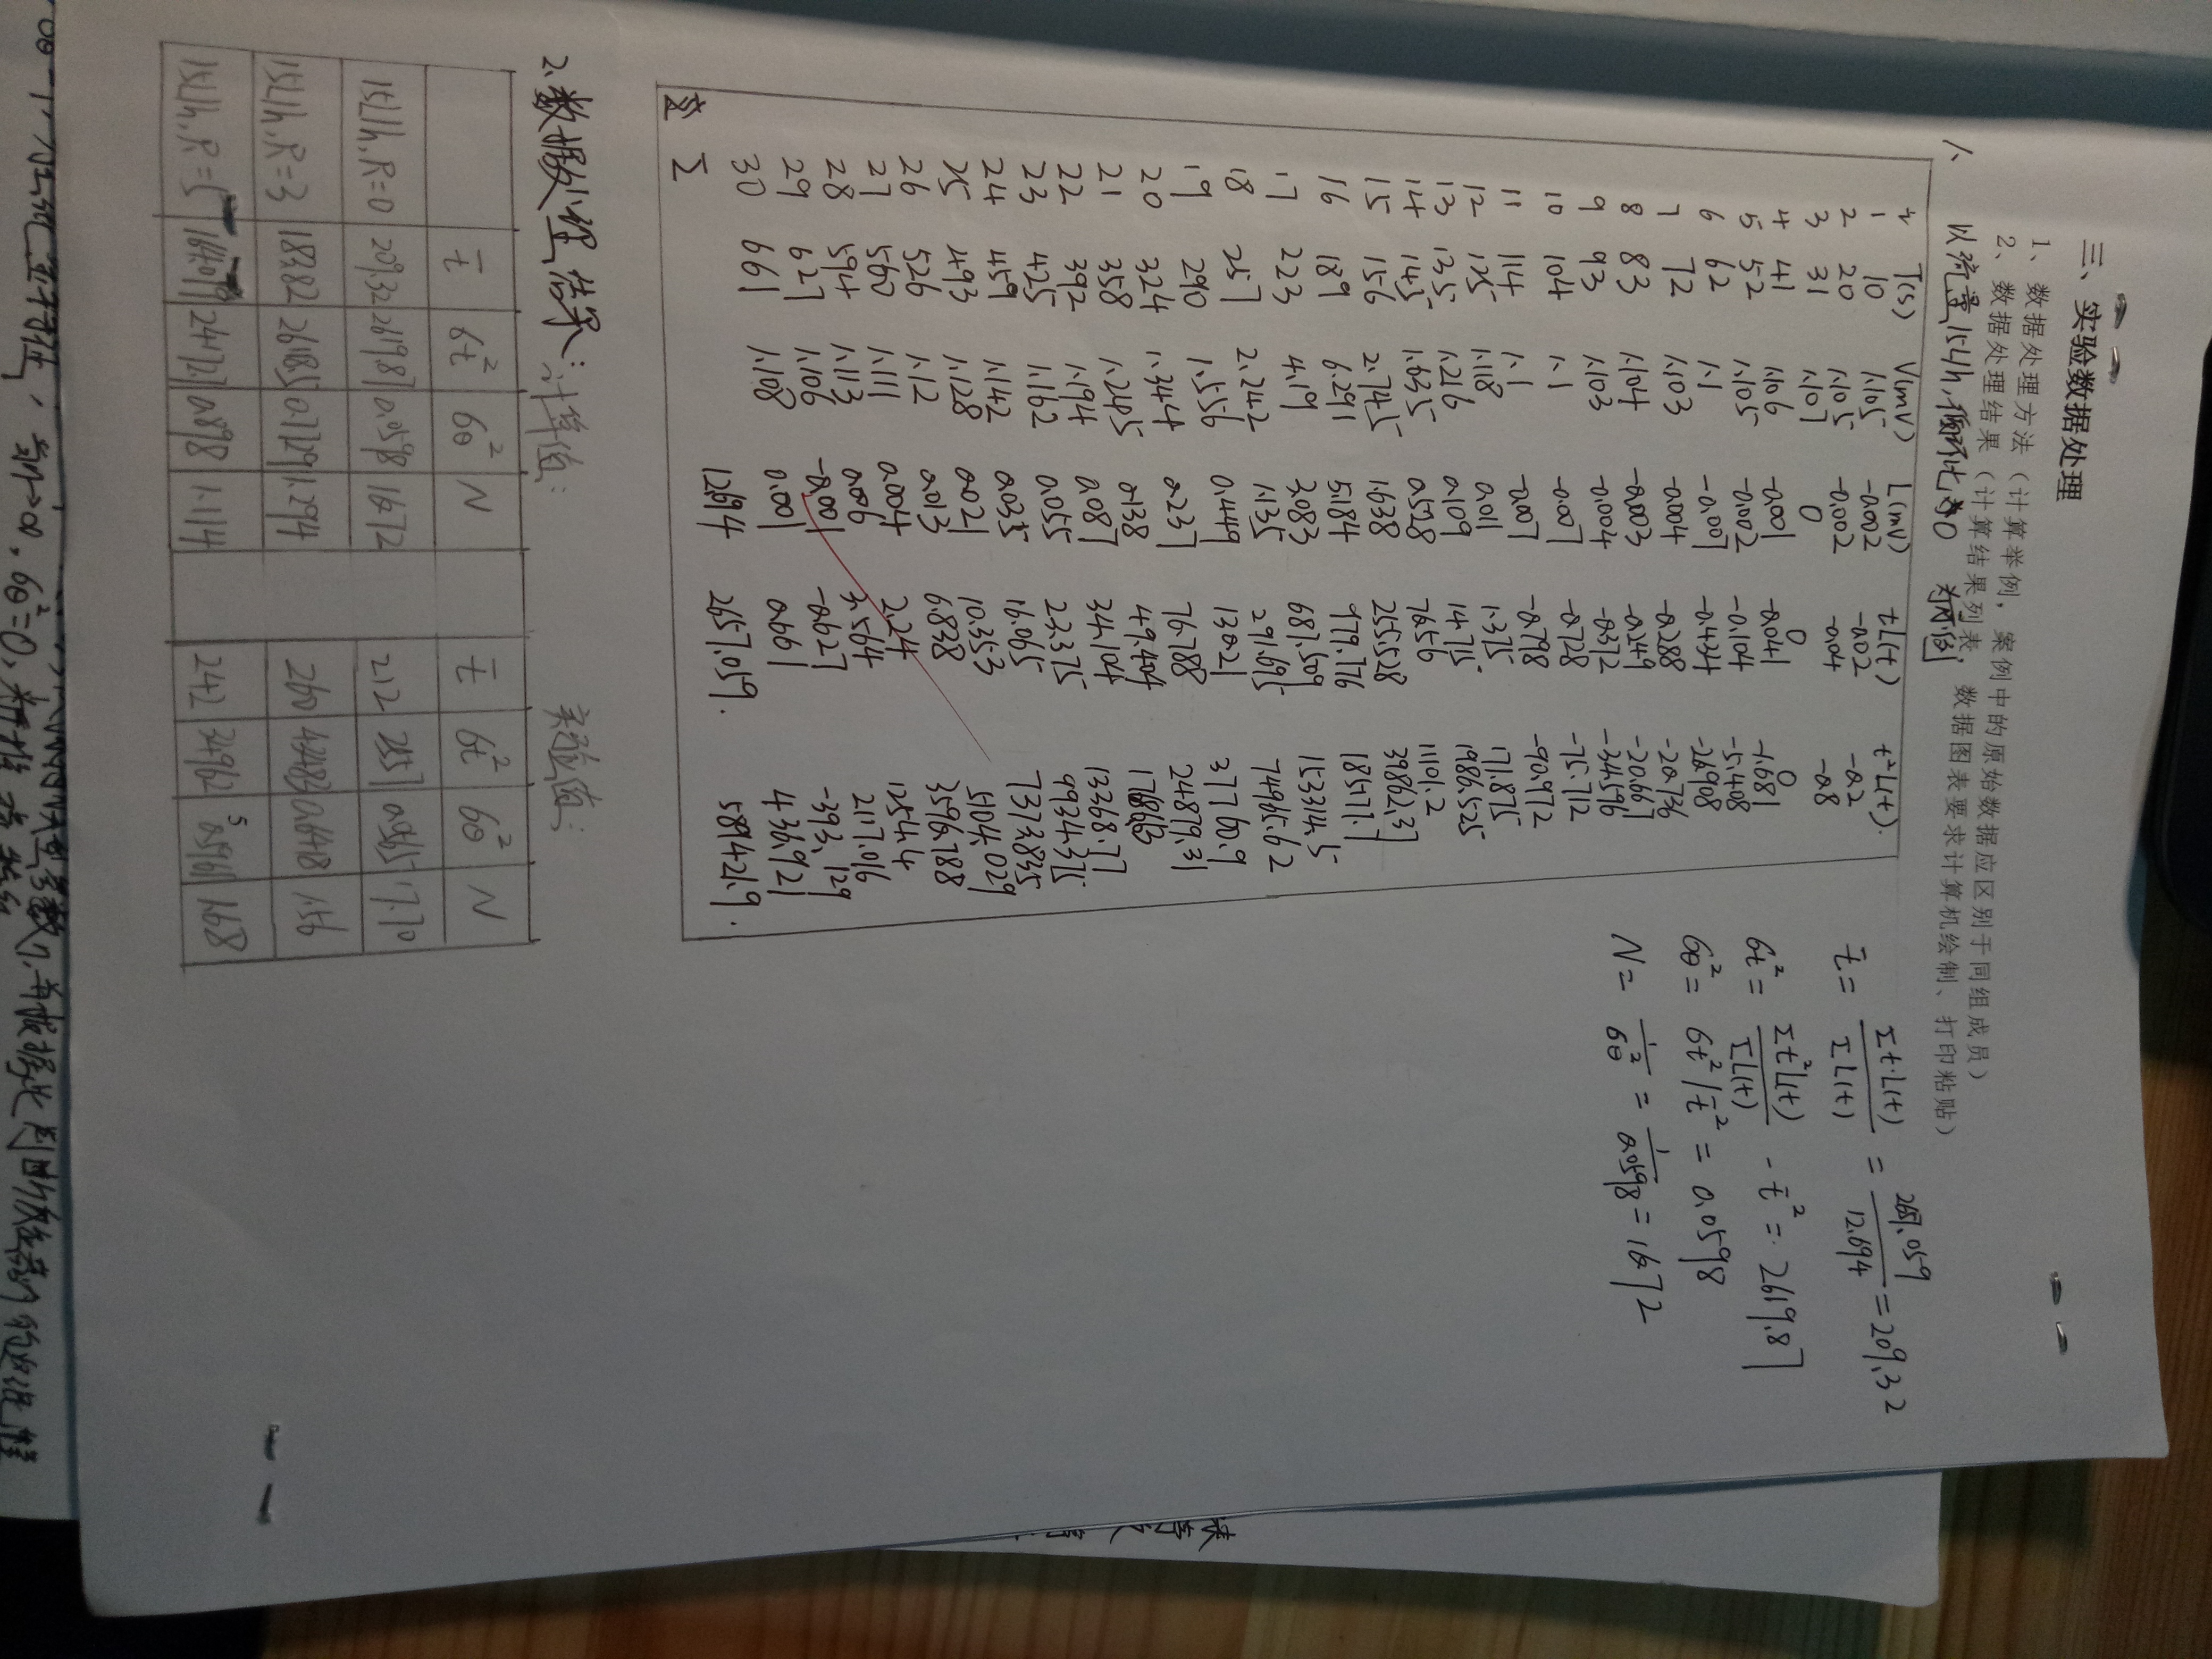 三、实验数据处理
1、数据处理方法（计算举例，案例中的原始数据应区别于同组成员）
2、数据处理结果（计算结果列表，数据图表要求计算机绘制、打印粘贴）
1、以流量15L/h，循环比为0 为例
T(s) V(mV) L(mV) tL(t) t²L(t)
1 10 1.105 -0.002 -0.02 -0.2
2 20 1.105 -0.002 -0.04 -0.8
3 31 1.107 0 0 0
4 41 1.106 -0.001 -0.041 -1.681
5 52 1.105 -0.002 -0.104 -5.408
6 62 1.1 -0.007 -0.434 -26.908
7 72 1.103 -0.004 -0.288 -20.736
8 83 1.104 -0.003 -0.249 -20.667
9 93 1.103 -0.004 -0.372 -34.596
10 104 1.1 -0.007 -0.728 -75.712
11 114 1.1 -0.007 -0.798 -90.972
12 125 1.118 0.011 1.375 171.875
13 135 1.216 0.109 14.715 1986.525
14 145 1.635 0.528 76.56 11101.2
15 156 2.745 1.638 255.528 39862.37
16 189 6.291 5.184 979.776 185177.7
17 223 4.19 3.083 687.509 153314.5
18 257 2.242 1.135 291.695 74965.62
19 290 1.556 0.449 130.21 37760.9
20 324 1.344 0.237 76.788 24879.31
21 358 1.245 0.138 49.404
22 392 1.194 0.087 34.104 13368.77
23 425 1.162 0.055 23.375 9934.375
24 459 1.142 0.035 16.065 7373.835
25 493 1.128 0.021 10.353 5104.029
26 526 1.12 0.013 6.838 3596.788
27 560 1.111 0.004 2.24 1254.4
28 594 1.113 0.006 3.564 2117.016
29 627 1.106 -0.001 -0.627 -393.129
30 661 1.108 0.001 0.661 436.921
Σ 12.694 2657.059 589421.9
t̄ = Σt·L(t) / ΣL(t) = / 12.694 = 209.32
σt² = Σt²L(t) / ΣL(t) - t̄² = 2619.87
σθ² = σt²/t̄² = 0.0598
N = 1/σθ² = 1/0.0598 = 16.72
2、数据处理结果：计算值： 实验值：
t̄ σt² σθ² N t̄ σt² σθ² N
15L/h, R=0 209.32 2619.87 0.0598 16.72 212 2557 0.0565 17.70
15L/h, R=3 183.82 26185 0.7729 1.294 260 0.648 1.56
15L/h, R=5 164.07 24172.7 0.898 1.114 242 1.68